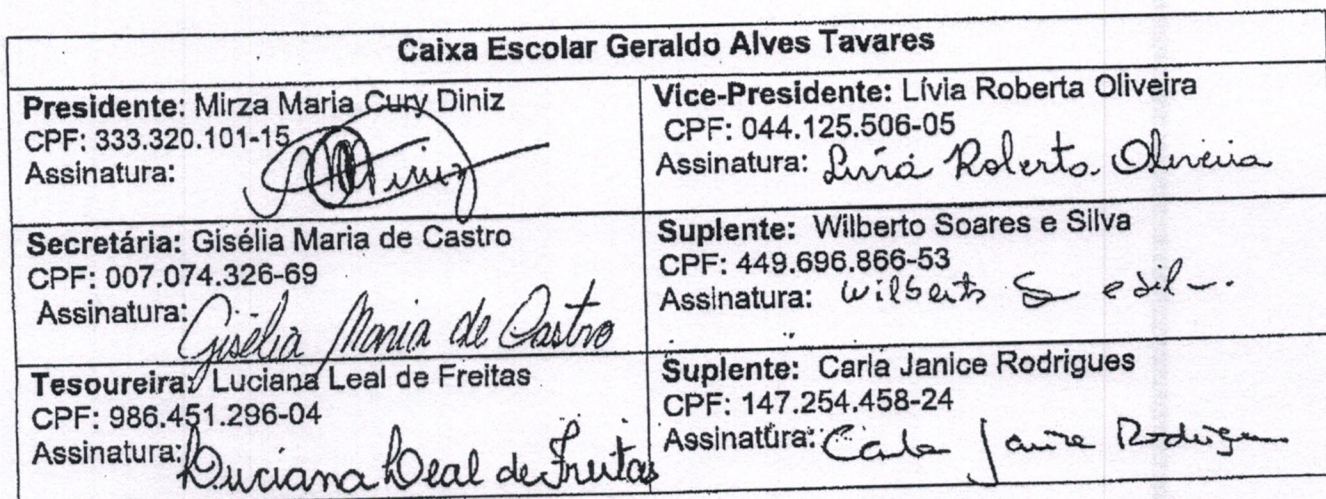 Caixa Escolar Geraldo Alves Tavares
Presidente: Mirza Maria Cury Diniz
CPF: 333.320.101-15
Assinatura: Diniz
Vice-Presidente: Lívia Roberta Oliveira
CPF: 044.125.506-05
Assinatura: Lívia Roberta Oliveira
Secretária: Gisélia Maria de Castro
CPF: 007.074.326-69
Assinatura: Gisélia Maria de Castro
Suplente: Wilberto Soares e Silva
CPF: 449.696.866-53
Assinatura: Wilberto S e Silv
Tesoureira: Luciana Leal de Freitas
CPF: 986.451.296-04
Assinatura: Luciana Leal de Freitas
Suplente: Carla Janice Rodrigues
CPF: 147.254.458-24
Assinatura: Carla Janice Rodrigues